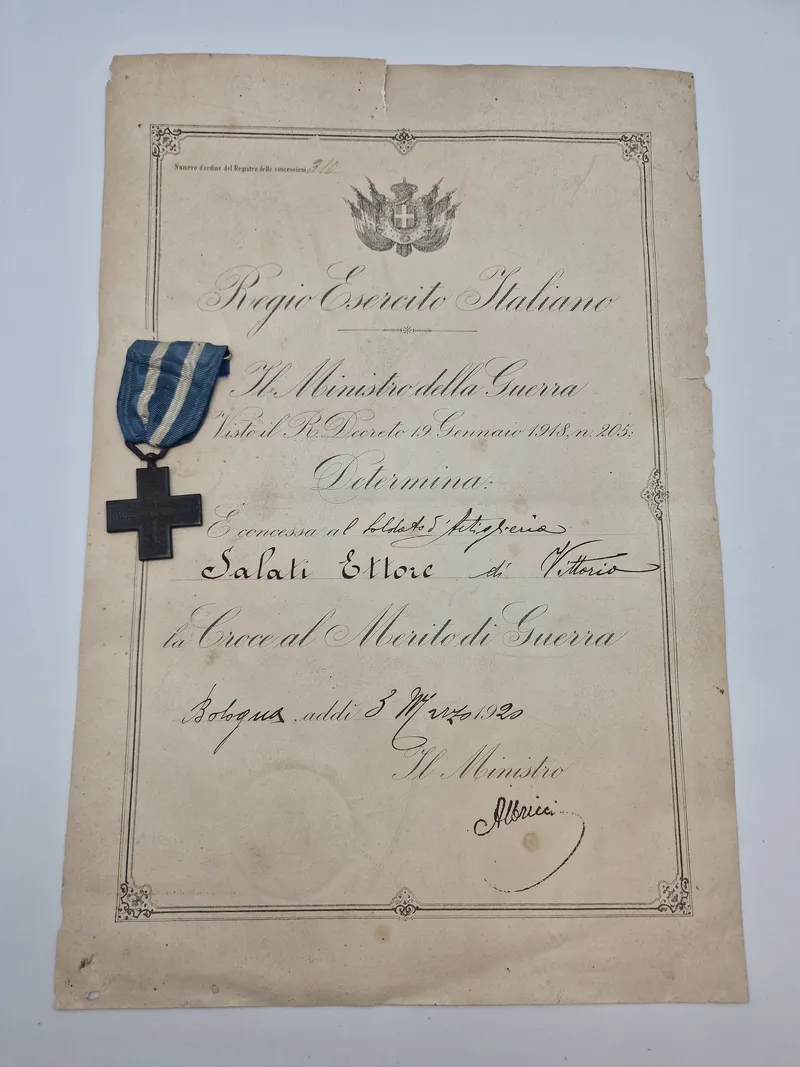 Numero d'ordine del Registro delle concessioni 310
Regio Esercito Italiano
Il Ministro della Guerra
Visto il R. Decreto 19 Gennaio 1918, n. 205;
Determina:
È concessa al soldato d'Artiglieria
Salati Ettore di Vittorio
la Croce al Merito di Guerra
Bologna addì 3 Marzo 1920
Il Ministro
Albricci